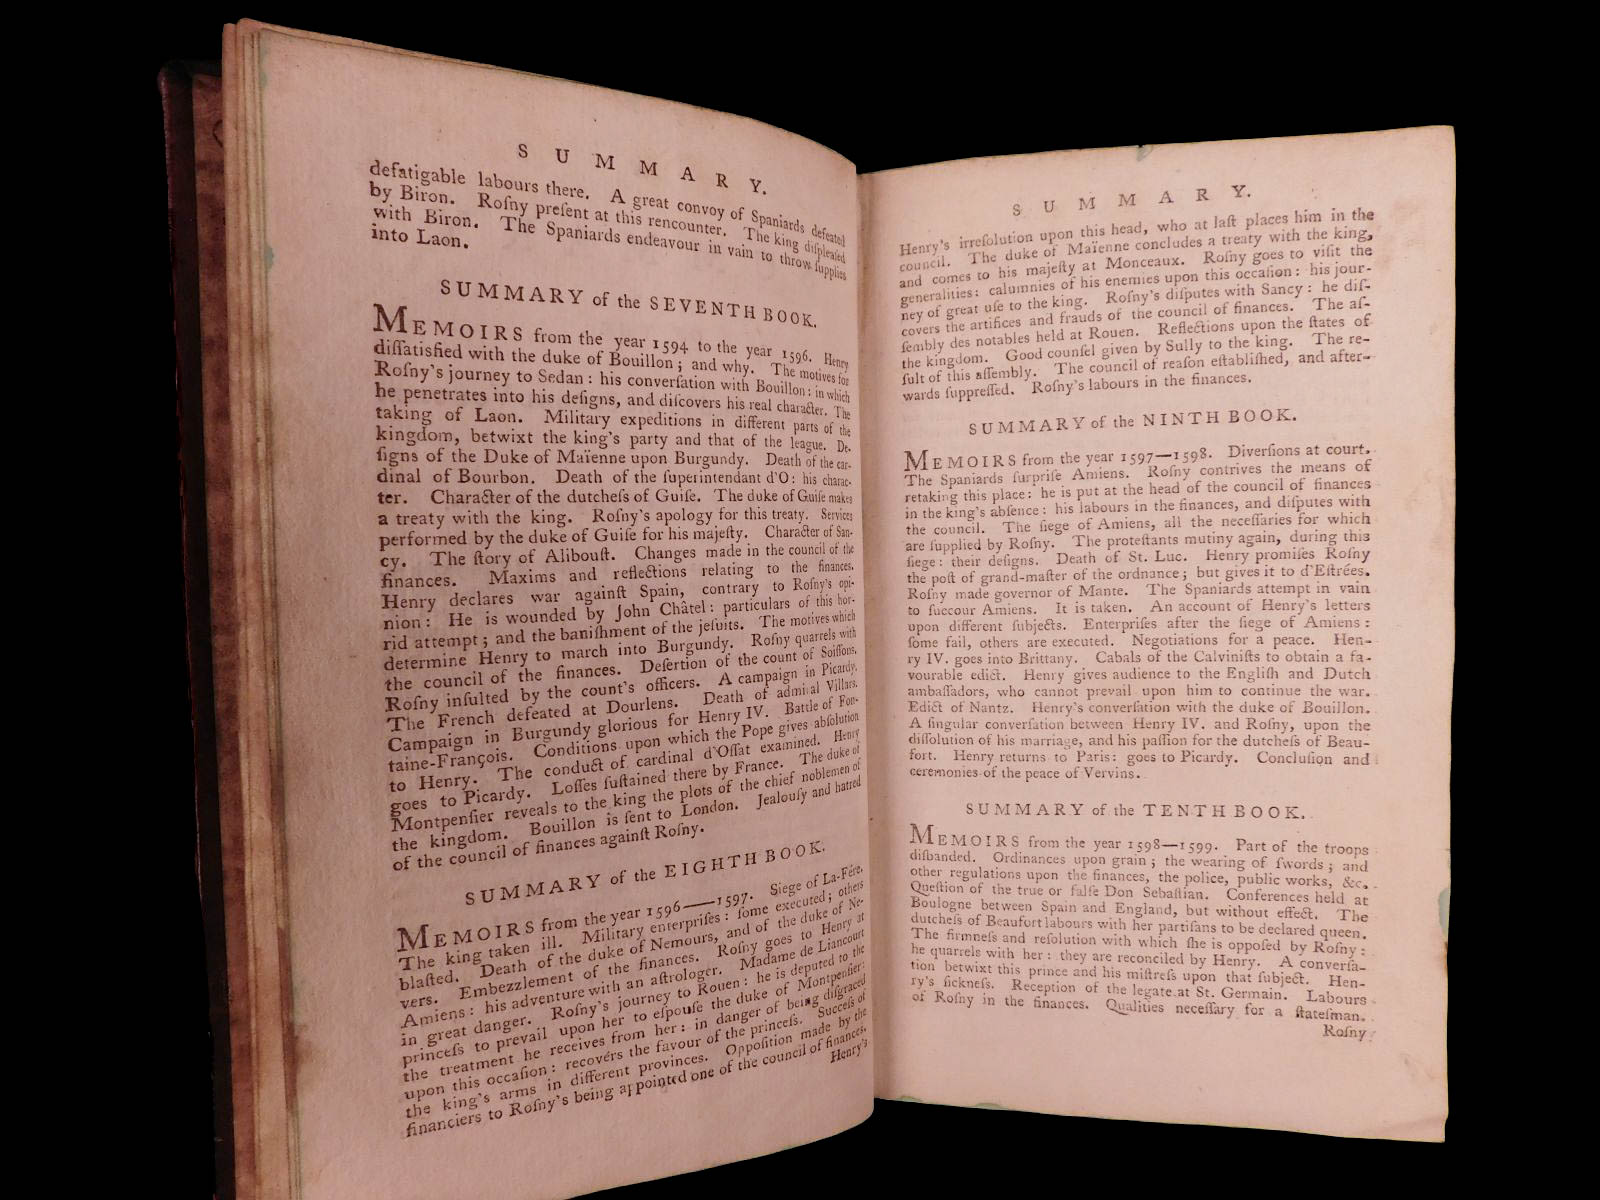 SUMMARY.
defatigable labours there. A great convoy of Spaniards defeated
by Biron. Roſny preſent at this rencounter. The king diſpleaſed
with Biron. The Spaniards endeavour in vain to throw ſupplies
into Laon.
SUMMARY of the SEVENTH BOOK.
MEMOIRS from the year 1594 to the year 1596. Henry
diſſatisfied with the duke of Bouillon; and why. The motives for
Roſny's journey to Sedan: his converſation with Bouillon: in which
he penetrates into his deſigns, and diſcovers his real character. The
taking of Laon. Military expeditions in different parts of the
kingdom, betwixt the king's party and that of the league. De-
ſigns of the Duke of Maïenne upon Burgundy. Death of the car-
dinal of Bourbon. Death of the ſuperintendant d'O: his charac-
ter. Character of the dutcheſs of Guiſe. The duke of Guiſe makes
a treaty with the king. Roſny's apology for this treaty. Services
performed by the duke of Guiſe for his majeſty. Character of San-
cy. The ſtory of Alibouſt. Changes made in the council of the
finances. Maxims and reflections relating to the finances.
Henry declares war againſt Spain, contrary to Roſny's opi-
nion: He is wounded by John Châtel: particulars of this hor-
rid attempt; and the baniſhment of the jeſuits. The motives which
determine Henry to march into Burgundy. Roſny quarrels with
the council of the finances. Deſertion of the count of Soiſſons.
Roſny inſulted by the count's officers. A campaign in Picardy.
The French defeated at Dourlens. Death of admiral Villars.
Campaign in Burgundy glorious for Henry IV. Battle of Fon-
taine-François. Conditions upon which the Pope gives abſolution
to Henry. The conduct of cardinal d'Oſſat examined. Henry
goes to Picardy. Loſſes ſuſtained there by France. The duke of
Montpenſier reveals to the king the plots of the chief noblemen of
the kingdom. Bouillon is ſent to London. Jealouſy and hatred
of the council of finances againſt Roſny.
SUMMARY of the EIGHTH BOOK.
MEMOIRS from the year 1596——1597. Siege of La-Fére.
The king taken ill. Military enterpriſes: ſome executed; others
blaſted. Death of the duke of Nemours, and of the duke of Ne-
vers. Embezzlement of the finances. Roſny goes to Henry at
Amiens: his adventure with an aſtrologer. Madame de Liancourt
in great danger. Roſny's journey to Rouen: he is deputed to the
princeſs to prevail upon her to eſpouſe the duke of Montpenſier:
the treatment he receives from her: in danger of being diſgraced
upon this occaſion: recovers the favour of the princeſs. Succeſs of
the king's arms in different provinces. Oppoſition made by the
financiers to Roſny's being appointed one of the council of finances.
Henry's
SUMMARY.
Henry's irreſolution upon this head, who at laſt places him in the
council. The duke of Maïenne concludes a treaty with the king,
and comes to his majeſty at Monceaux. Roſny goes to viſit the
generalities: calumnies of his enemies upon this occaſion: his jour-
ney of great uſe to the king. Roſny's diſputes with Sancy: he diſ-
covers the artifices and frauds of the council of finances. The aſ-
ſembly des notables held at Rouen. Reflections upon the ſtates of
the kingdom. Good counſel given by Sully to the king. The re-
ſult of this aſſembly. The council of reaſon eſtabliſhed, and after-
wards ſuppreſſed. Roſny's labours in the finances.
SUMMARY of the NINTH BOOK.
MEMOIRS from the year 1597—1598. Diverſions at court.
The Spaniards ſurpriſe Amiens. Roſny contrives the means of
retaking this place: he is put at the head of the council of finances
in the king's abſence: his labours in the finances, and diſputes with
the council. The ſiege of Amiens, all the neceſſaries for which
are ſupplied by Roſny. The proteſtants mutiny again, during this
ſiege: their deſigns. Death of St. Luc. Henry promiſes Roſny
the poſt of grand-maſter of the ordnance; but gives it to d'Eſtrées.
Roſny made governor of Mante. The Spaniards attempt in vain
to ſuccour Amiens. It is taken. An account of Henry's letters
upon different ſubjects. Enterpriſes after the ſiege of Amiens:
ſome fail, others are executed. Negotiations for a peace. Hen-
ry IV. goes into Brittany. Cabals of the Calviniſts to obtain a fa-
vourable edict. Henry gives audience to the Engliſh and Dutch
ambaſſadors, who cannot prevail upon him to continue the war.
Edict of Nantz. Henry's converſation with the duke of Bouillon.
A ſingular converſation between Henry IV. and Roſny, upon the
diſſolution of his marriage, and his paſſion for the dutcheſs of Beau-
fort. Henry returns to Paris: goes to Picardy. Concluſion and
ceremonies of the peace of Vervins.
SUMMARY of the TENTH BOOK.
MEMOIRS from the year 1598—1599. Part of the troops
diſbanded. Ordinances upon grain; the wearing of ſwords; and
other regulations upon the finances, the police, public works, &c.
Queſtion of the true or falſe Don Sebaſtian. Conferences held at
Boulogne between Spain and England, but without effect. The
dutcheſs of Beaufort labours with her partiſans to be declared queen.
The firmneſs and reſolution with which ſhe is oppoſed by Roſny:
he quarrels with her: they are reconciled by Henry. A converſa-
tion betwixt this prince and his miſtreſs upon that ſubject. Hen-
ry's ſickneſs. Reception of the legate at St. Germain. Labours
of Roſny in the finances. Qualities neceſſary for a ſtateſman.
Roſny